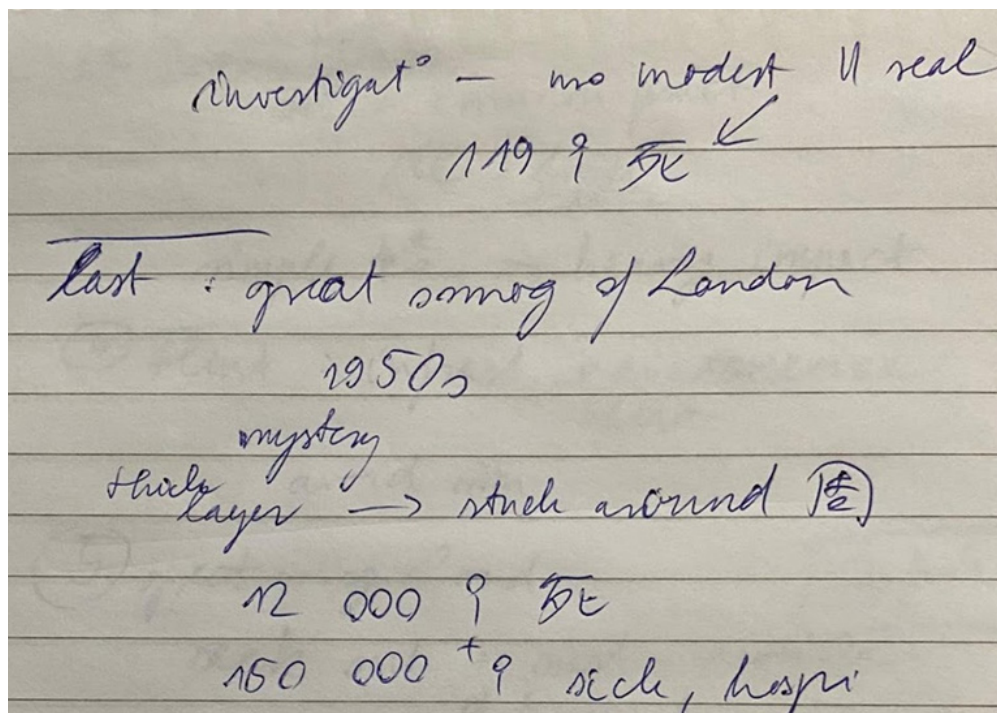 investigat° — no modest 11 real
119 ♀ 死
last : great smog of London
1950s
mystery
thick
layer → stuck around
12 000 ♀ 死
150 000 + ♀ sick, hospi